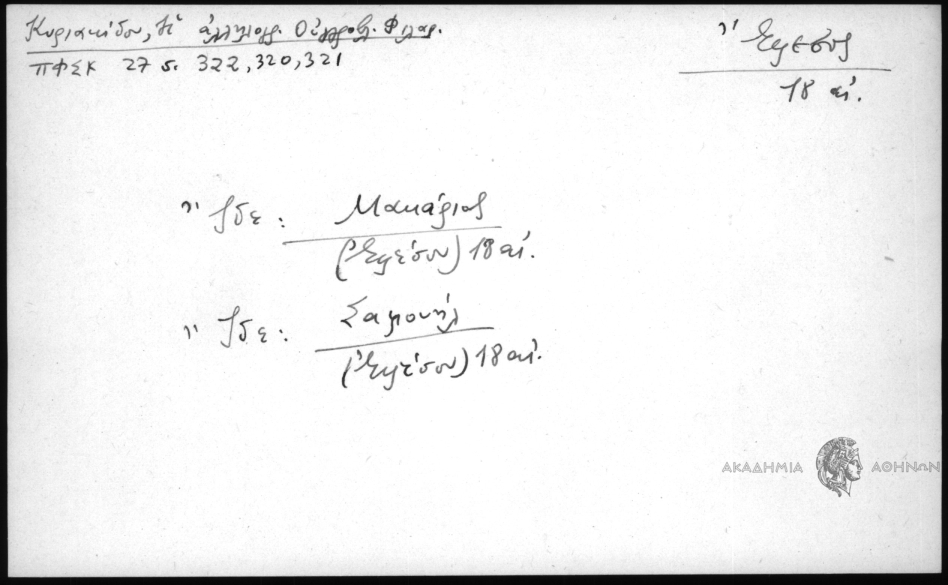 Κυριακίδου, Ἡ ἀλληλογρ. Φιλαρ.
ΠΦΣΚ 27 σ. 322, 320, 321
Ἔφεσος
18 αἰ.
Ἴδε: Μακάριος
(Ἐφέσου) 18 αἰ.
Ἴδε: Σαμουήλ
(Ἐφέσου) 18 αἰ.
ΑΚΑΔΗΜΙΑ ΑΘΗΝΩΝ